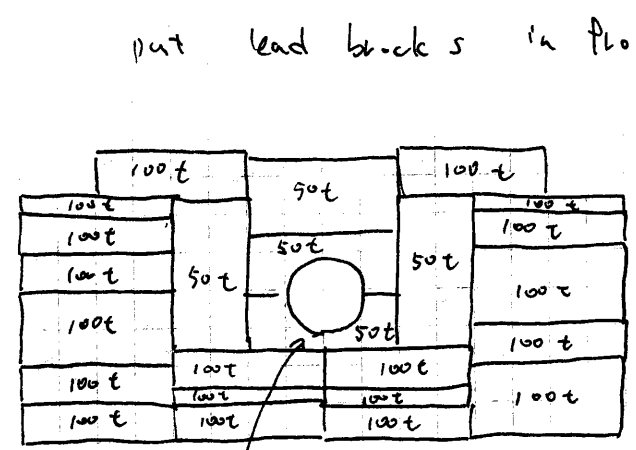 put lead blocks in
100t 100t
50t
100t 100t
100t 100t
50t
100t 50t 50t
100t
100t
50t 100t
100t 100t
100t
100t 100t 100t
100t 100t
100t 100t 100t